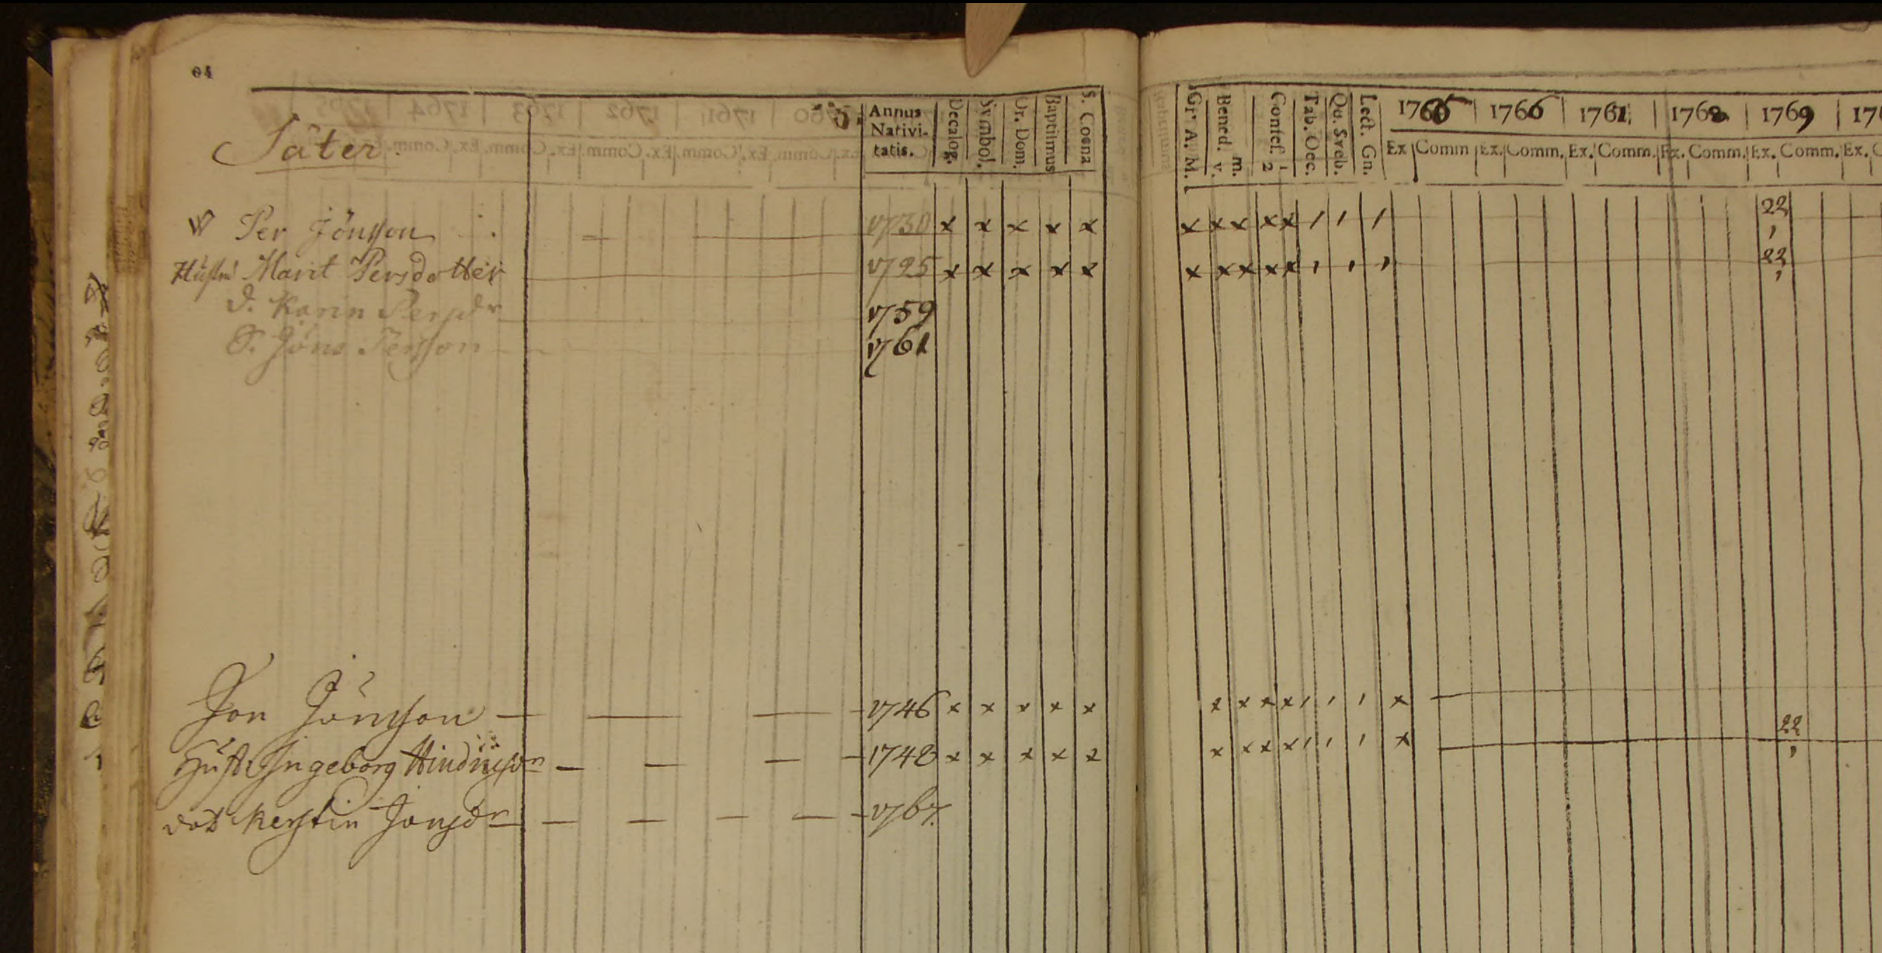 64
5.
Annus Nativi-tatis.
Decalog.
Symbol.
Or. Dom.
Baptismus
S. Coena
Gr. A. M.
Bened. m. v.
Confes. 1 2
Tab. Oec.
Qu. Sveb.
Lect. Gn.
1766 1766 1761 1768 1769 17
Ex Comm Ex. Comm. Ex. Comm. Ex. Comm. Ex. Comm. Ex. C
Säter.
Per Jönsson 1730 x x x x x x x x x x 22
Hustru Marit Persdotter 1725 x x x x x x x x x x 22
D. Karin Persdr 1759
S. Jöns Persson 1761
Jon Jönsson 1746 x x x x x x x x x x
Hust Ingeborg 1748 x x x x x x x x x x 22
dot Kerstin Jonsdr 1767.